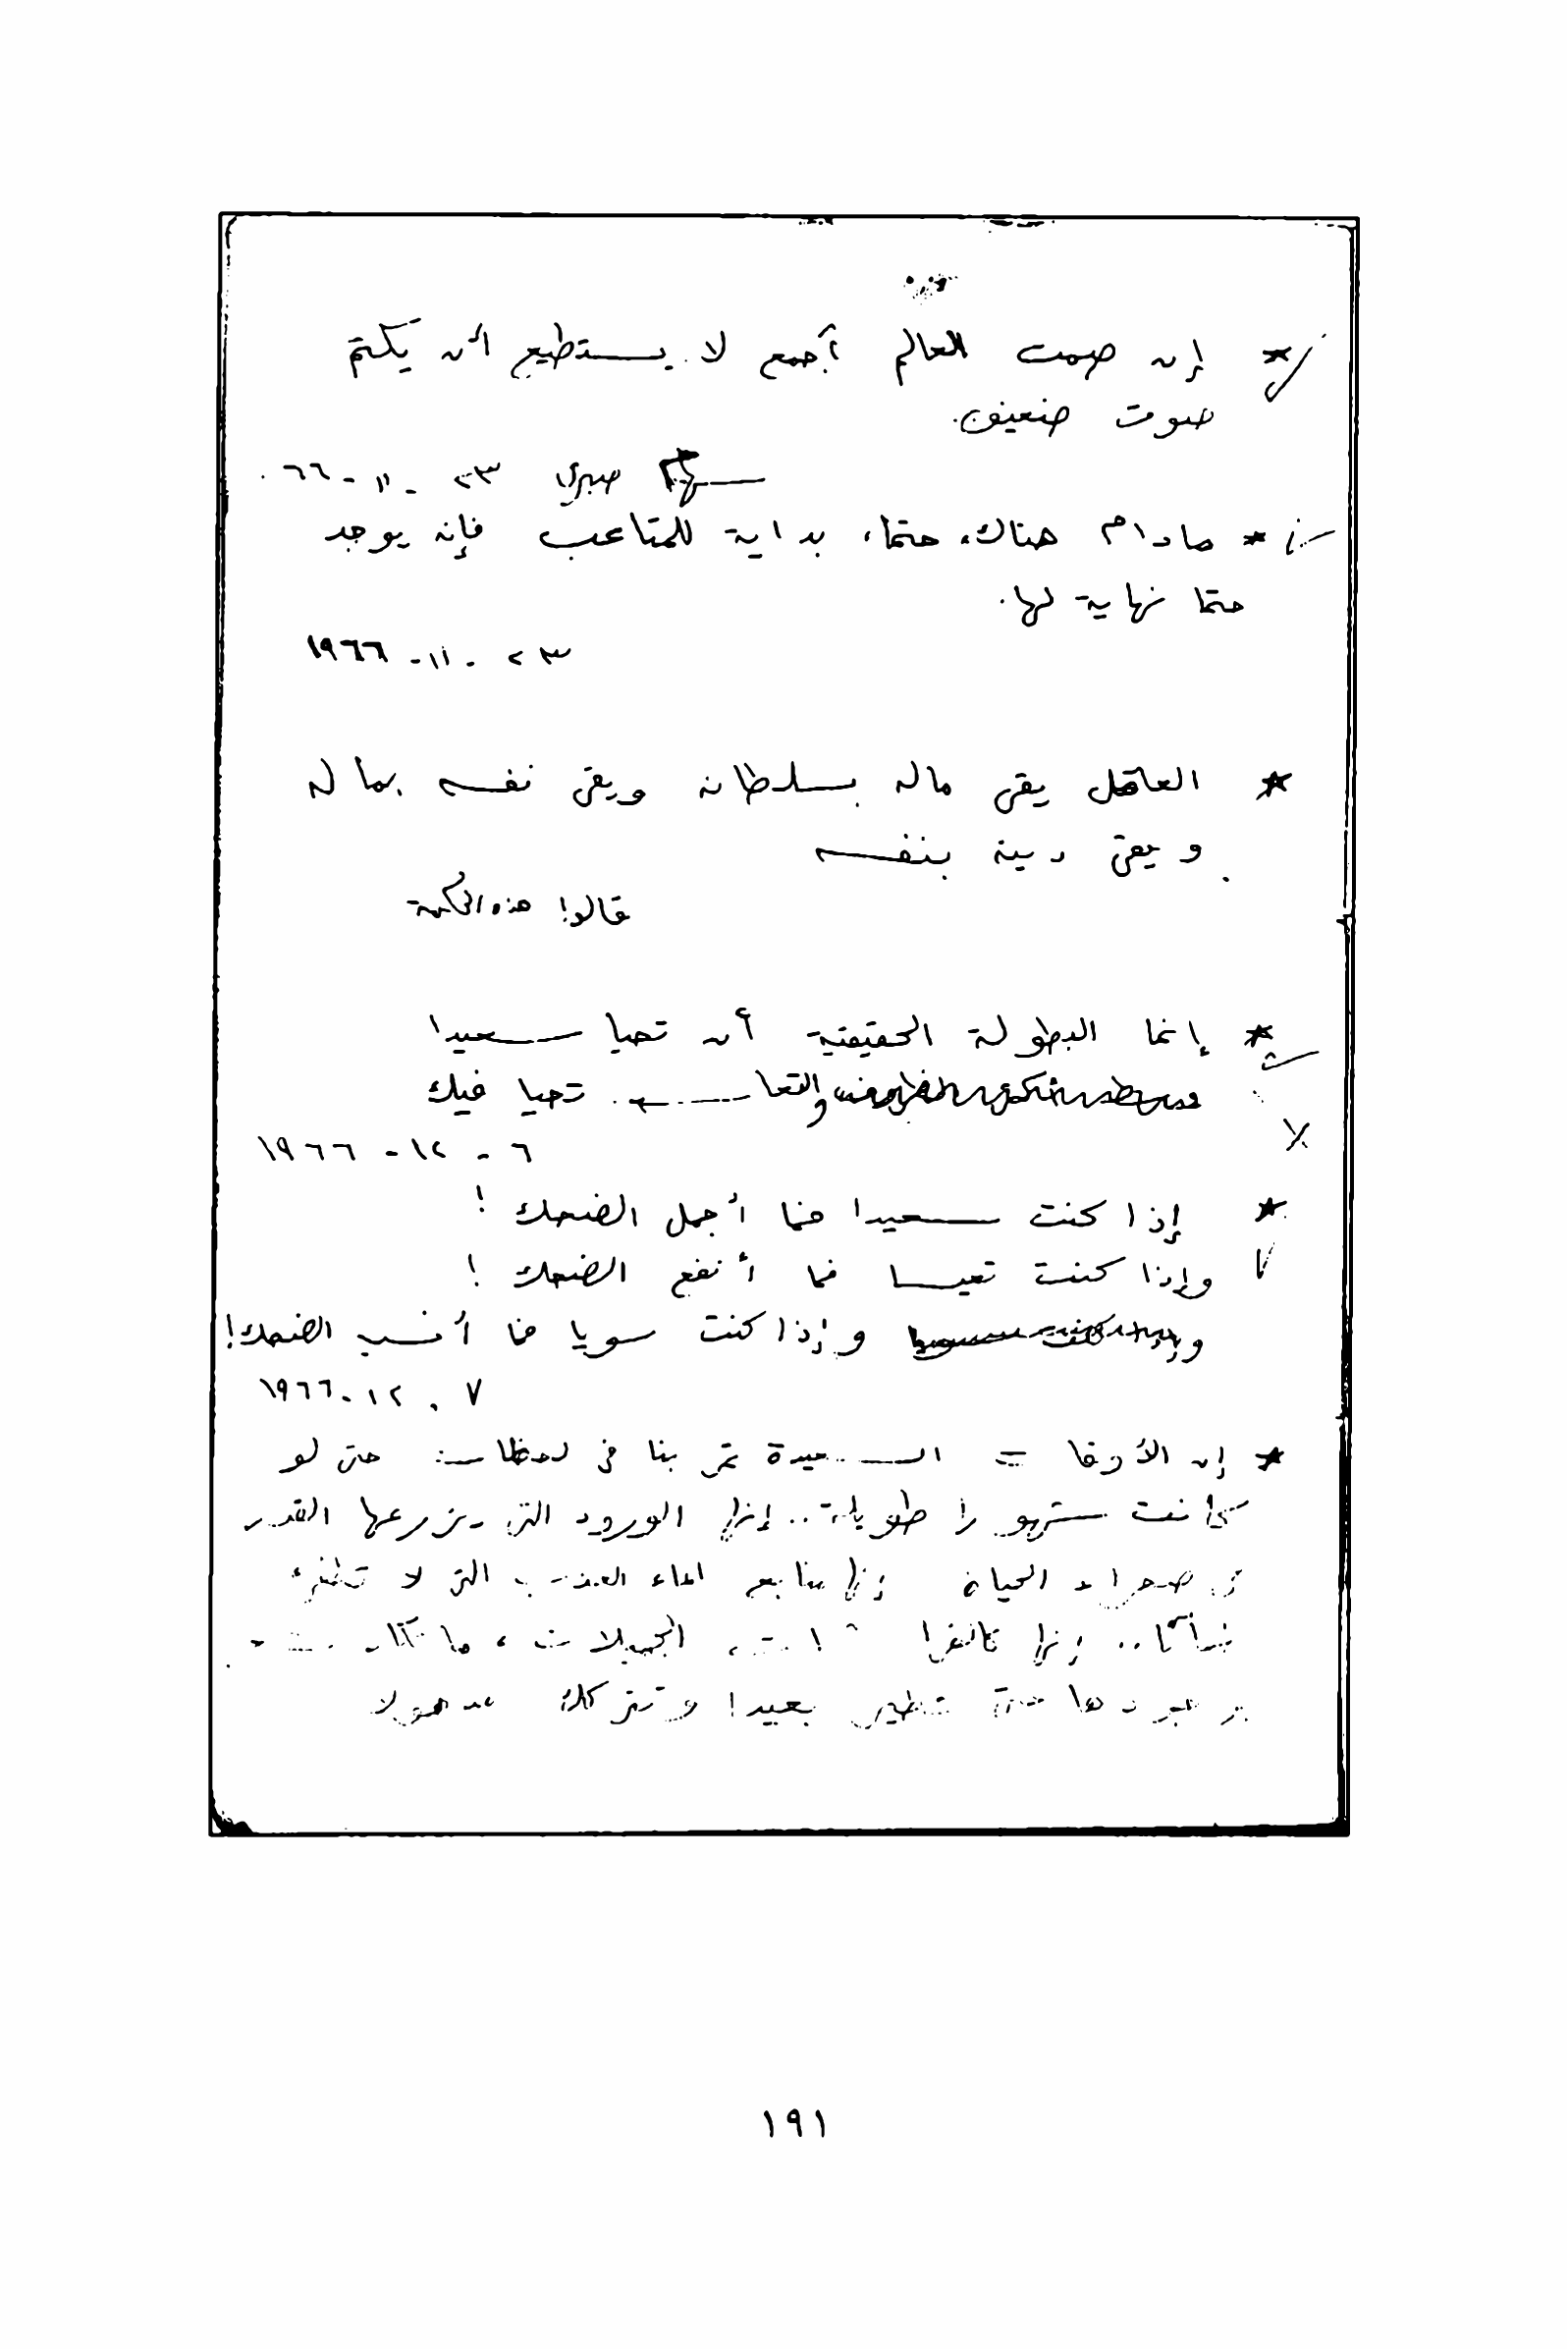 * إن صمت العالم أجمع لا يستطيع أن يكتم
صوت ضعيف.
سهام صبري ٢٣ - ١١ - ٦٦.
* مادام هناك، حتما، بداية للمتاعب فإنه يوجد
حتما نهاية لها.
٢٣ - ١١ - ١٩٦٦
* العاقل يقى ماله بسلطانه ويقى نفسه بماله
ويقى دينه بنفسه
قالوا هذه الحكمة
* إنما البطولة الحقيقية أن تحيا سعيدا
والتعاسة تحيا فيك
٦ - ١٢ - ١٩٦٦
* إذا كنت سعيدا فما أجمل الضحك!
وإذا كنت تعيسا فما أنفع الضحك!
وإذا كنت سويا فما أنسب الضحك!
٧ - ١٢ - ١٩٦٦
* إن الأوقات السعيدة تمر بنا فى لحظات حتى لو
كانت شهورا طويلة.. إنها الورود التى يزرعها القدر
فى صحراء الحياة إنها منابع الماء العذب التى لا تطفىء
ظمأنا.. إنها كالفراشات الجميلات، ما تكاد
بوجودها حتى تطير بعيدا وتتركك مذهولا
١٩١